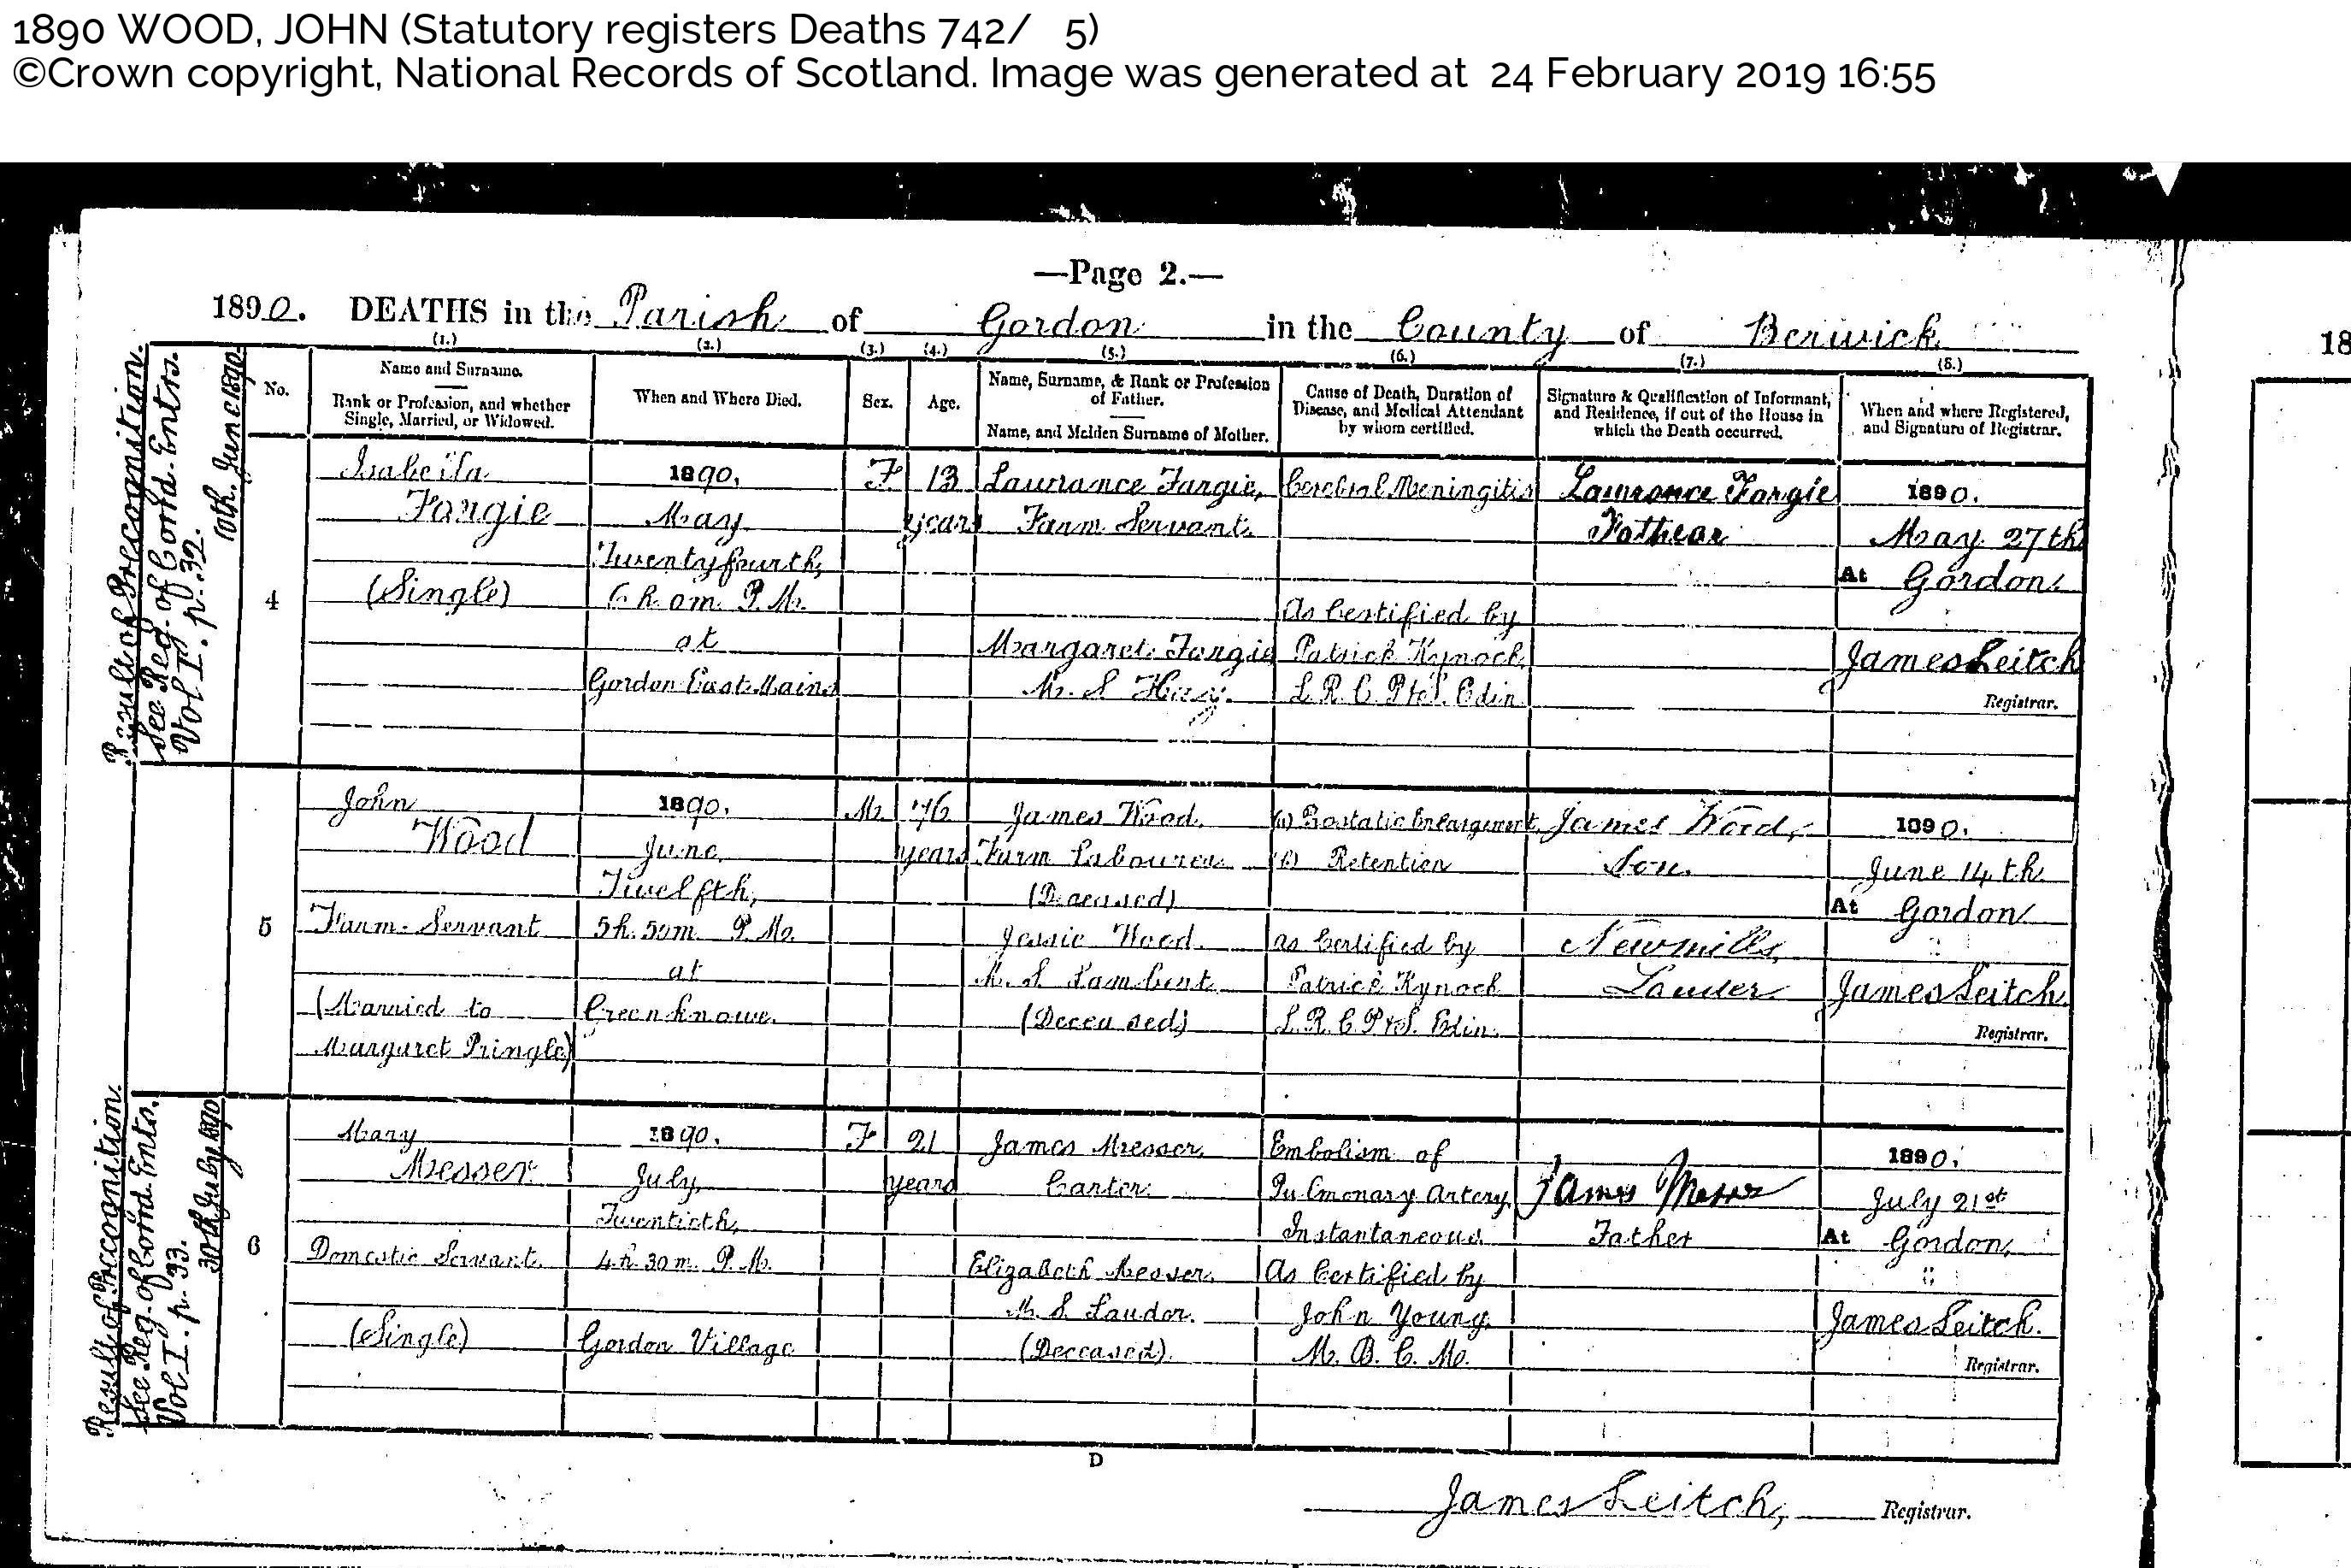 1890 WOOD, JOHN (Statutory registers Deaths 742/ 5)
©Crown copyright, National Records of Scotland. Image was generated at 24 February 2019 16:55
—Page 2.—
1890. DEATHS in the Parish of Gordon in the County of Berwick
(1.) (2.) (3.) (4.) (5.) (6.) (7.) (8.)
No.
Name and Surname.
Rank or Profession, and whether
Single, Married, or Widowed.
When and Where Died.
Sex.
Age.
Name, Surname, & Rank or Profession
of Father.
Name, and Maiden Surname of Mother.
Cause of Death, Duration of
Disease, and Medical Attendant
by whom certified.
Signature & Qualification of Informant,
and Residence, if out of the House in
which the Death occurred.
When and where Registered,
and Signature of Registrar.
Result of Precognition.
See Reg. of Corrd. Entrs.
Vol I. p. 32.
10th. June 1890.
4
Isabella
Fargie
(Single)
1890.
May
Twenty fourth,
6 h. 0 m. P.M.
at
Gordon East Mains
F
13
years
Lawrance Fargie,
Farm Servant.
Margaret Fargie
M. S. Hay.
Cerebral Meningitis
As Certified by
Patrick Kynoch
L. R. C. P. & S. Edin.
Lawrance Fargie
Father
1890.
May 27th
At Gordon.
James Leitch
Registrar.
5
John
Wood
Farm-Servant
(Married to
Margaret Pringle)
1890.
June
Twelfth,
5 h. 50 m. P.M.
at
Greenknowe.
M.
76
years
James Wood.
Farm Labourer
(Deceased)
Jessie Wood.
M. S. Lambert
(Deceased)
(a) Prostatic Enlargement
(b) Retention
as Certified by
Patrick Kynoch
L. R. C. P. & S. Edin.
James Wood,
Son.
Newmills,
Lauder
1890.
June 14th
At Gordon
James Leitch
Registrar.
Result of Precognition.
See Reg. of Corrd. Ents.
Vol I. p. 33.
30th July 1890
6
Mary
Messer
Domestic Servant.
(Single)
1890.
July
Twentieth,
4 h 30 m. P.M.
Gordon Village
F
21
years
James Messer.
Carter.
Elizabeth Messer.
M. S. Lauder.
(Deceased).
Embolism of
Pulmonary Artery.
Instantaneous.
As Certified by
John Young.
M. B. C. M.
James Messer
Father
1890.
July 21st
At Gordon,
James Leitch.
Registrar.
D
James Leitch, Registrar.
18